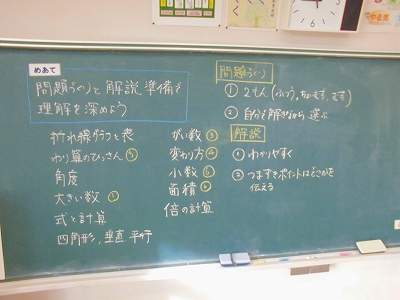 めあて
問題づくりと解説準備で
理解を深めよう
折れ線グラフと表
わり算のひっさん
角度
大きい数
式と計算
四角形、垂直 平行
がい数
変わり方
小数
面積
倍の計算
問題づくり
① 2もん(ふつう、ちょいむず、むず)
② 自分で解きながら 選ぶ
解説
① わかりやすく
② つまずきポイントはどこかを
伝える